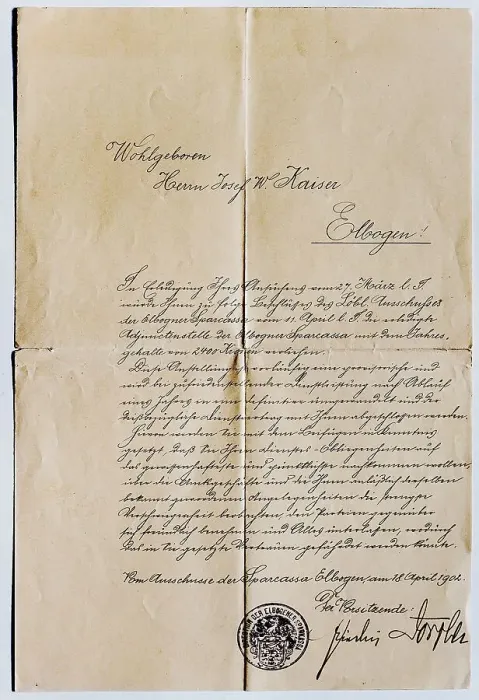 Wohlgeboren
Herrn Josef W. Kaiser
Elbogen!
In Erledigung Ihres Ansuchens vom 27. März l. J.
wurde Ihnen zu folge Beschlußes des Löbl. Ausschußes
der Elbogner Sparcassa vom 11. April l. J. die erledigte
Adjunctenstelle der Elbogner Sparcassa mit dem Jahres-
gehalte von 2400 Kronen verliehen.
Diese Anstellung ist vorläufig eine provisorische und
wird bei zufriedenstellender Dienstleistung nach Ablauf
eines Jahres in eine definitive umgewandelt und der
diesbezügliche Dienstvertrag mit Ihnen abgeschlossen werden.
Hievon werden Sie mit dem Beifügen in Kenntnis
gesetzt, daß Sie Ihren Dienstes-Obliegenheiten auf
das gewissenhafteste und pünktlichste nachkommen wollen,
über die Amtsgeschäfte und die Ihnen anläßlich derselben
bekannt gewordenen Angelegenheiten die strengste
Verschwiegenheit beobachten, den Parteien gegenüber
sich freundlich benehmen und Alles unterlassen, wodurch
das in Sie gesetzte Vertrauen gefährdet werden könnte.
Vom Ausschusse der Sparcassa Elbogen, am 18. April 1902.
Der Vorsitzende:
DER ELBOGENER SPARKASSA